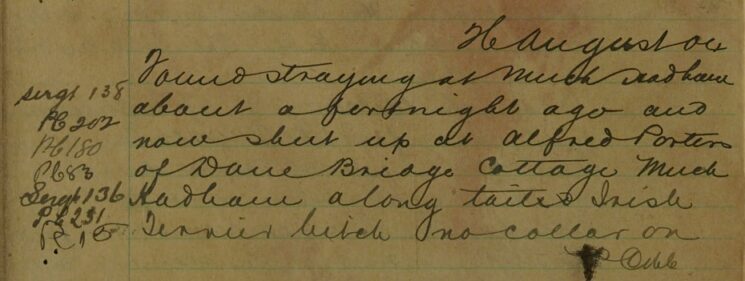 August 04
Found straying at Much Hadham
sergt 138
about a fortnight ago and
PC 202
now shut up at Alfred Porters
PC 180
of Dane Bridge Cottage Much
PC 83
Hadham a long tailed Irish
Sergt 136
PC 231
Terrier bitch no collar on